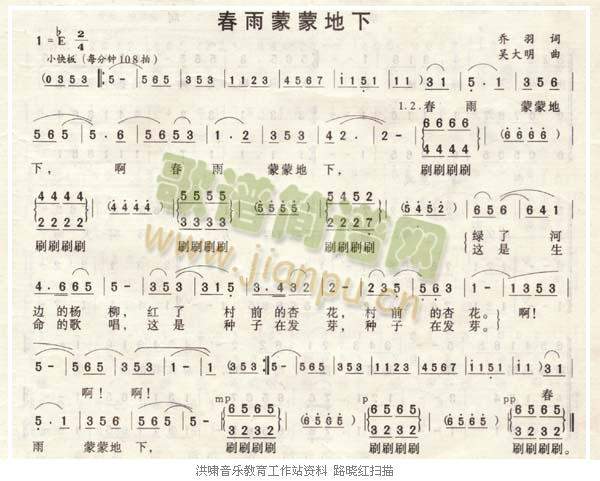 春雨蒙蒙地下
1=ᵇE 2/4
乔 羽 词
吴大明 曲
小快板(每分钟108拍)
(0353 5- 565 353 1123 4567 i151 i i) 31 5.1 356
1.2.春 雨 蒙蒙地
565 5.6 565 353 1.2 353 42. 2- 6666 4444 (6666)
下, 啊 春 雨 蒙蒙地 下, 刷刷刷刷
4444 2222 (4444) 5555 3333 (5555) 5452 2227 (5452) 656 641
刷刷刷刷 刷刷刷刷 刷刷刷刷 绿了 河
这是 生
边的杨 柳,红了 村 前的杏 花, 村 前 的杏花。 啊!
命的歌 唱,这是 种 子在发 芽, 种 子 在发芽。
5- 565 353 1-1 (353 5- 565 353 1123 4567 i151 i i) 31
啊! 啊! 春
mp p pp
雨 蒙蒙地 下, 刷刷刷刷 刷刷刷刷 刷刷刷刷。
歌谱简谱网
www.jianpu.cn
洪啸音乐教育工作站资料 路晓红扫描